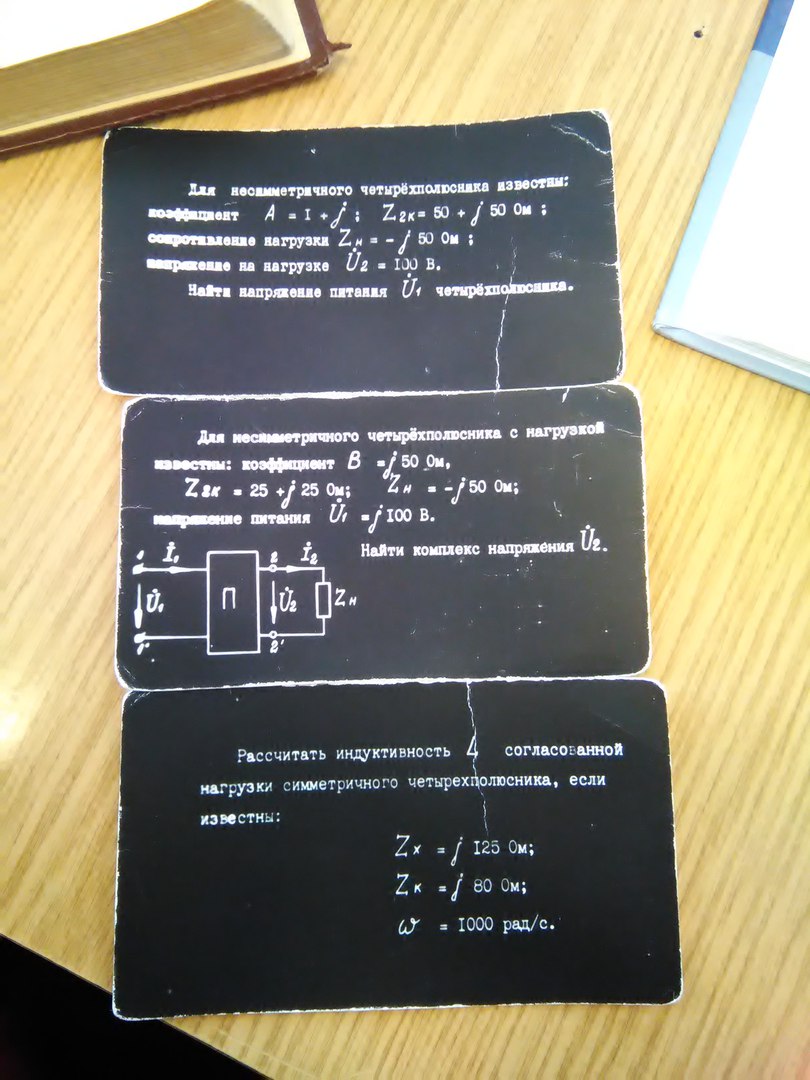 Для несимметричного четырёхполюсника известны:
коэффициент A = 1 + j; Z2к = 50 + j 50 Ом;
сопротивление нагрузки Zн = -j 50 Ом;
напряжение на нагрузке U̇2 = 100 В.
Найти напряжение питания U̇1 четырёхполюсника.
Для несимметричного четырёхполюсника с нагрузкой
известны: коэффициент B = j 50 Ом,
Z2к = 25 + j 25 Ом; Zн = -j 50 Ом;
напряжение питания U̇1 = j 100 В.
Найти комплекс напряжения U̇2.
1 İ1 2 İ2
U̇1 П U̇2 Zн
1' 2'
Рассчитать индуктивность L согласованной
нагрузки симметричного четырехполюсника, если
известны:
Zх = j 125 Ом;
Zк = j 80 Ом;
ω = 1000 рад/с.